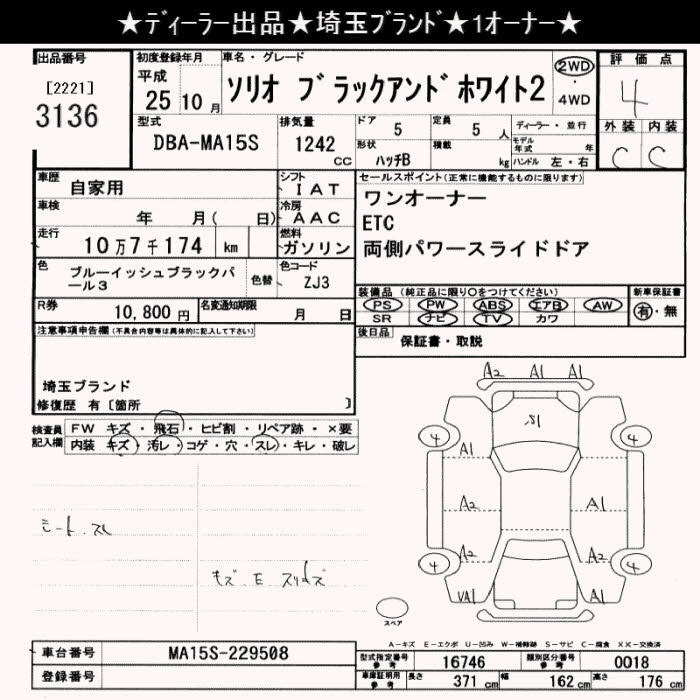 ★ディーラー出品★埼玉ブランド★1オーナー★
出品番号 初度登録年月 車名・グレード 2WD 評価点
[2221] 平成 ソリオ ブラックアンドホワイト2 ・ 4
3136 25 10 月 4WD 外装 内装
型式 排気量 ドア 5 定員 5 人 ディーラー・並行 C C
DBA-MA15S 1242 cc 形状 積載 モデル年式 年
ハッチB kg ハンドル 左・右
車歴 自家用 シフト IAT セールスポイント(正常に機能するものに限ります)
車検 年 月( 日) 冷房 AAC ワンオーナー
走行 10万7千174 km 燃料 ガソリン ETC
両側パワースライドドア
色 ブルーイッシュブラックパール3 色替 色コード ZJ3
装備品 (純正品に限り○をつけてください) 新車保証書
R券 10,800 円 名変通知期限 月 日 PS PW ABS エアB AW 有・無
SR ナビ TV カワ
注意事項申告欄(不具合内容等は具体的に記入して下さい) 後日品 保証書・取説
埼玉ブランド
修復歴 有 [箇所 ]
検査員記入欄 FW キズ・飛石・ヒビ割・リペア跡・×要
内装 キズ・汚レ・コゲ・穴・スレ・キレ・破レ
A2 A1 A1
S1
4 4
A1
A2 A1
A2 A2
4 4
VA1 A1
シート スレ
キズ E
スペア
A-キズ E-エクボ U-凹み W-補修跡 S-サビ C-腐食 XX-交換済
車台番号 MA15S-229508 型式指定番号 参考 16746 類別区分番号 参考 0018
登録番号 車庫証明用 参考 長さ 371 cm 幅 162 cm 高さ 176 cm